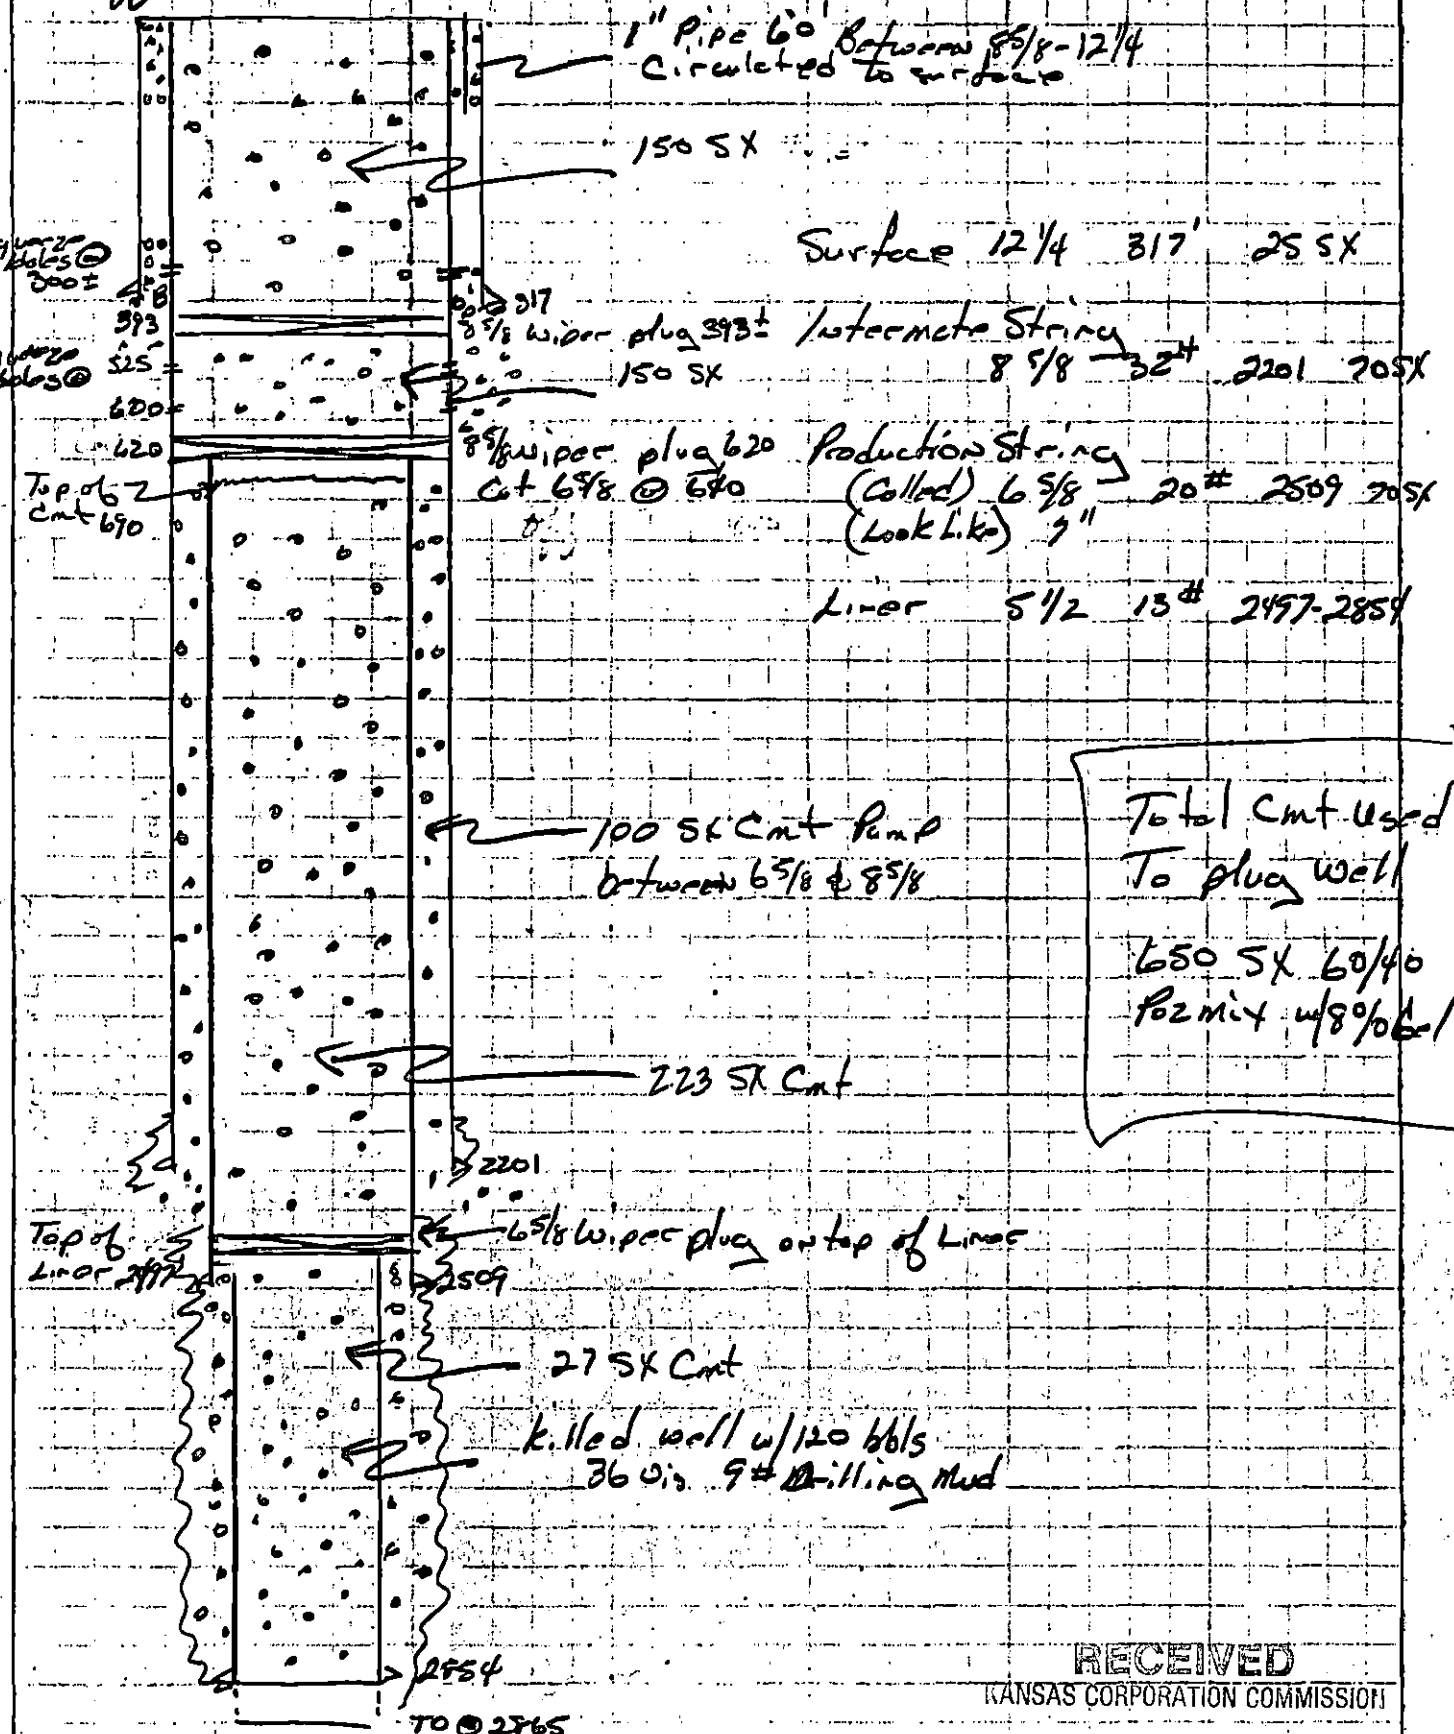 1" Pipe 60' Between 8 5/8 - 12 1/4
Circulated to surface
150 SX
Squeeze
Holes @
300 ±
Surface 12 1/4 317' 25 SX
317
393
8 5/8 wiper plug 393 ±
Intermate String
8 5/8 - 32# 2201 70SX
525
Holes @
150 SX
600
620
8 5/8 wiper plug 620
Cut 6 5/8 @ 640
Production String
(Called) 6 5/8 - 20# 2509 70SX
(Look Like) 7"
Top of
Cmt 690
Liner 5 1/2 13# 2497-2854
100 SX Cmt Pump
between 6 5/8 & 8 5/8
Total Cmt Used
To plug well
650 SX 60/40
Pozmix w/8% Gel
223 SX Cmt
2201
Top of
Liner 2497
6 5/8 Wiper plug on top of Liner
2509
27 SX Cmt
killed well w/120 bbls
36 Vis. 9# Drilling Mud
2854
TD @ 2865
RECEIVED
KANSAS CORPORATION COMMISSION